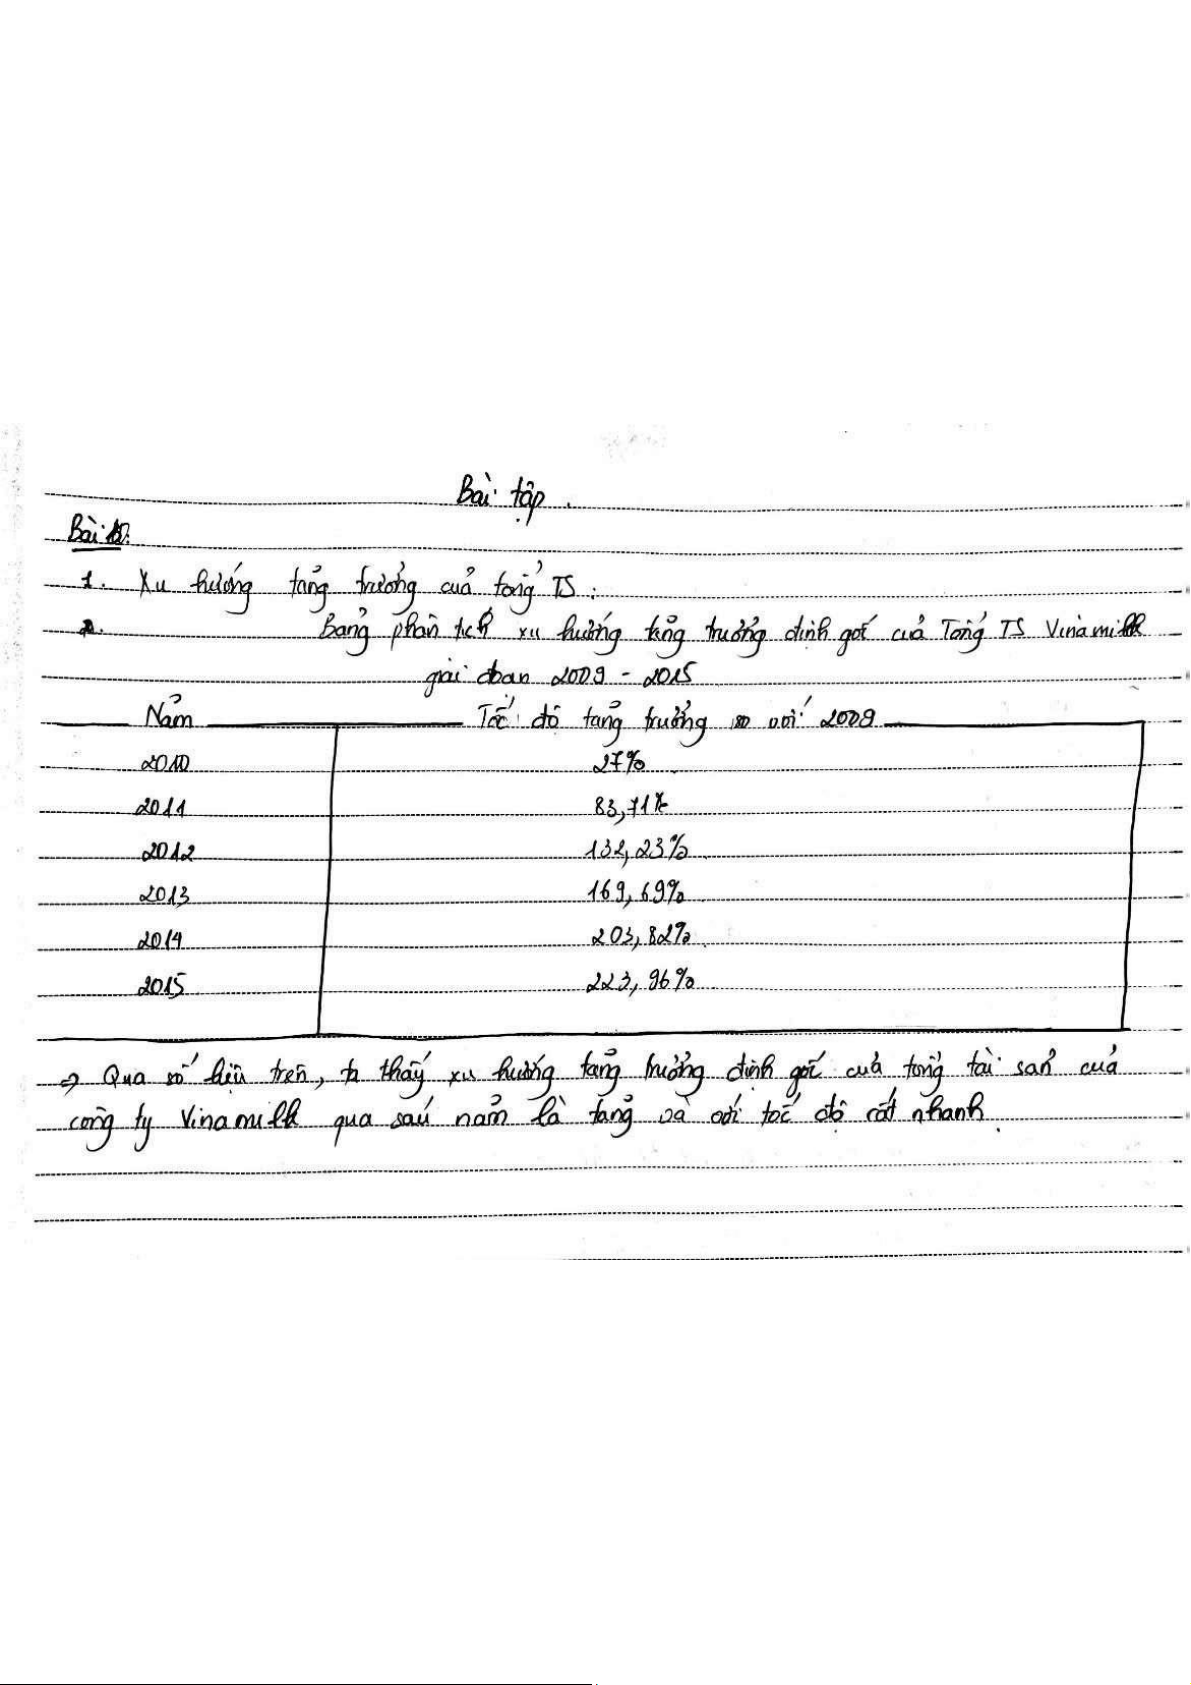 Bài tập.
Bài 10:
1. Xu hướng tăng trưởng của tổng TS:
Bảng phân tích xu hướng tăng trưởng định gốc của Tổng TS Vinamilk
giai đoạn 2009 - 2015
Năm Tốc độ tăng trưởng so với 2009
2010 27%
2011 83,71%
2012 132,23%
2013 169,69%
2014 203,82%
2015 223,96%
=> Qua số liệu trên, ta thấy xu hướng tăng trưởng định gốc của tổng tài sản của
công ty Vinamilk qua sáu năm là tăng và với tốc độ rất nhanh.